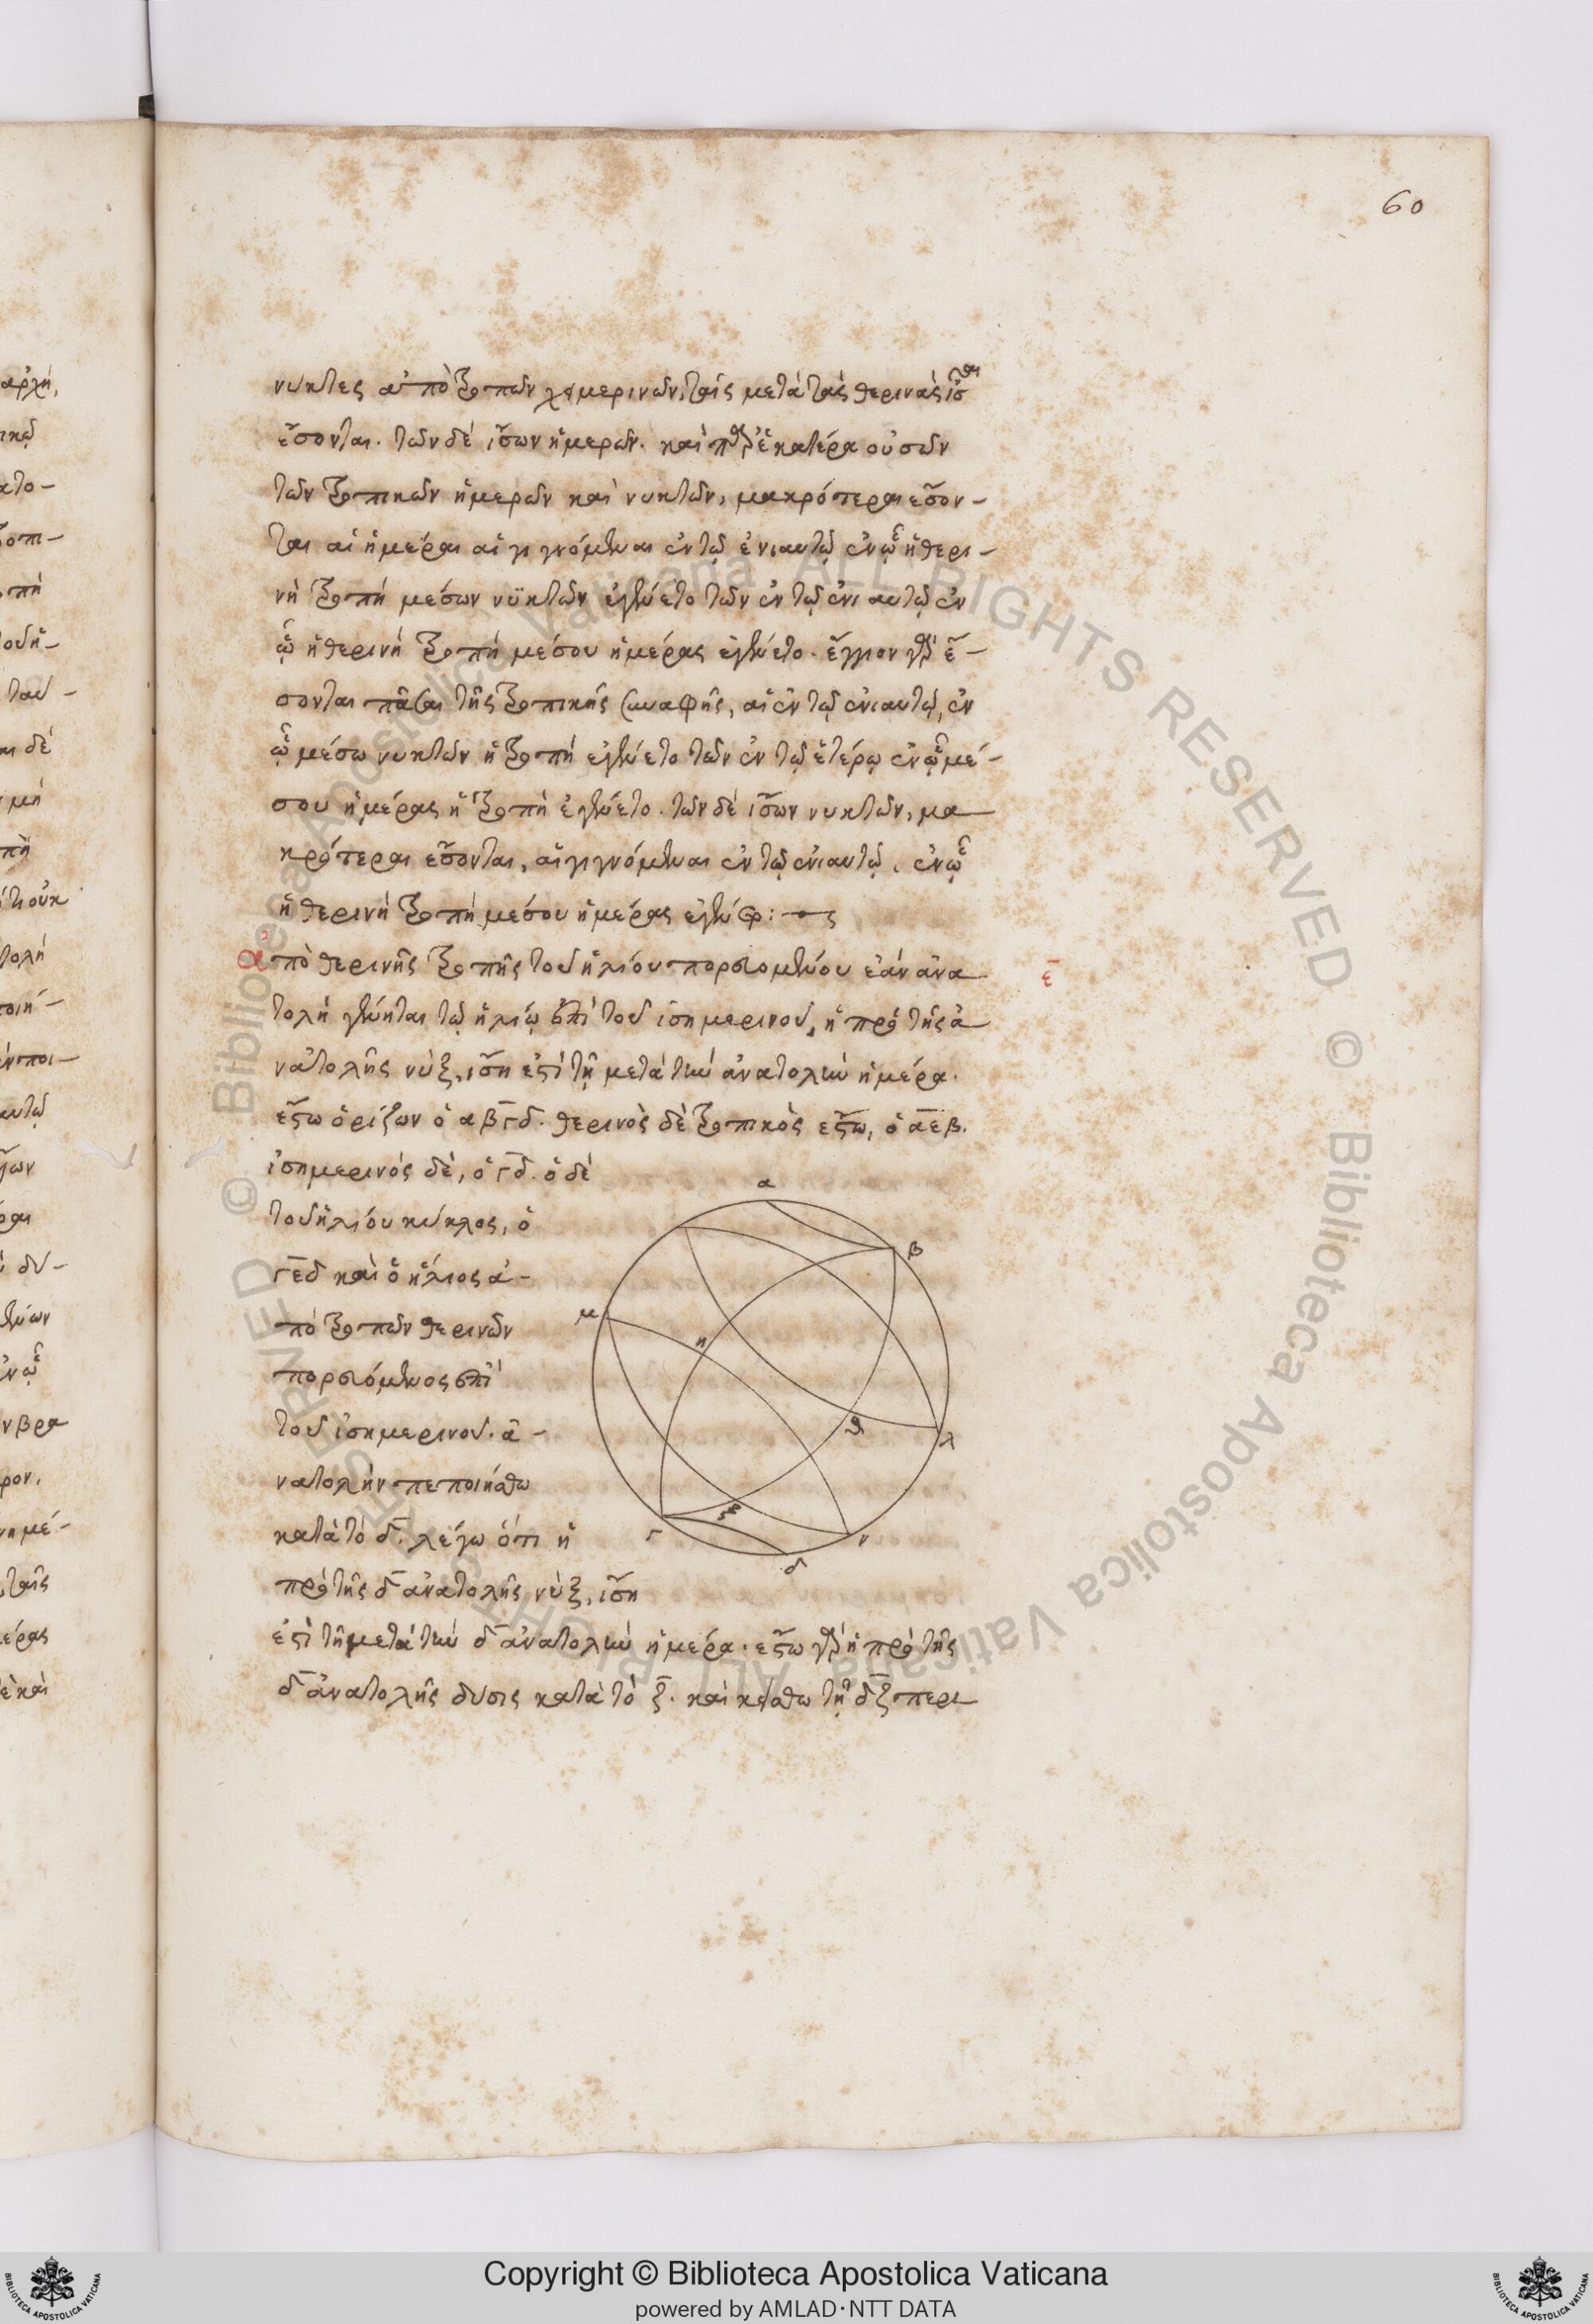 60
νυκτες ἀπὸ τροπῶν χειμερινῶν, ταῖς μετὰ τὰς θερινὰς ἴσαι
ἔσονται. τῶν δὲ ἴσων ἡμερῶν. καὶ παρ' ἑκατέρα οὐσῶν
τῶν τροπικῶν ἡμερῶν καὶ νυκτῶν, μακρότεραι ἔσον-
ται αἱ ἡμέραι αἱ γιγνόμεναι ἐν τῷ ἐνιαυτῷ ἐν ᾧ ἡ θερι-
νὴ τροπὴ μέσων νϋκτῶν ἐγένετο τῶν ἐν τῷ ἐνιαυτῷ ἐν
ᾧ ἡ θερινὴ τροπὴ μέσου ἡμέρας ἐγένετο. ἔγγιον γὰρ ἔ-
σονται πᾶσαι τῆς τροπικῆς συναφῆς, αἱ ἐν τῷ ἐνιαυτῷ, ἐν
ᾧ μέσω νυκτῶν ἡ τροπὴ ἐγένετο τῶν ἐν τῷ ἑτέρῳ ἐν ᾧ μέ-
σου ἡμέρας ἡ τροπὴ ἐγένετο. τῶν δὲ ἴσων νυκτῶν, μα
κρότεραι ἔσονται, αἱ γιγνόμεναι ἐν τῷ ἐνιαυτῷ, ἐν ᾧ
ἡ θερινὴ τροπὴ μέσου ἡμέρας ἐγένετο:
ἀπὸ θερινῆς τροπῆς τοῦ ἡλίου πορευομένου ἐὰν ἀνα
ε
τολὴ γένηται τῷ ἡλίῳ ἐπὶ τοῦ ἰσημερινοῦ, ἡ πρὸ τῆς ἀ
νατολῆς νὺξ, ἴση ἐστὶ τῇ μετὰ τὴν ἀνατολὴν ἡμέρα.
ἔστω ὁρίζων ὁ αβγδ. θερινὸς δὲ τροπικὸς ἔστω, ὁ αεβ.
ἰσημερινὸς δὲ, ὁ γδ. ὁ δὲ
τοῦ ἡλίου κύκλος, ὁ
γεδ καὶ ὁ ἥλιος ἀ-
πὸ τροπῶν θερινῶν
πορευόμενος ἐπὶ
τοῦ ἰσημερινοῦ. ἀ-
νατολὴν πεποιήσθω
κατὰ τὸ δ. λέγω ὅτι ἡ
πρὸ τῆς δ ἀνατολῆς νὺξ, ἴση
ἐστὶ τῇ μετὰ τὴν δ ἀνατολὴν ἡμέρα. ἔστω γὰρ ἡ πρὸ τῆς
δ ἀνατολῆς δυσις κατὰ τὸ ξ. καὶ κείσθω τῇ δξ περι
α
β
μ
η
θ
λ
ξ
γ
ν
δ
© Biblioteca Apostolica Vaticana ALL RIGHTS RESERVED © Biblioteca Apostolica Vaticana ALL RIGHTS RESERVED
Copyright © Biblioteca Apostolica Vaticana
powered by AMLAD·NTT DATA